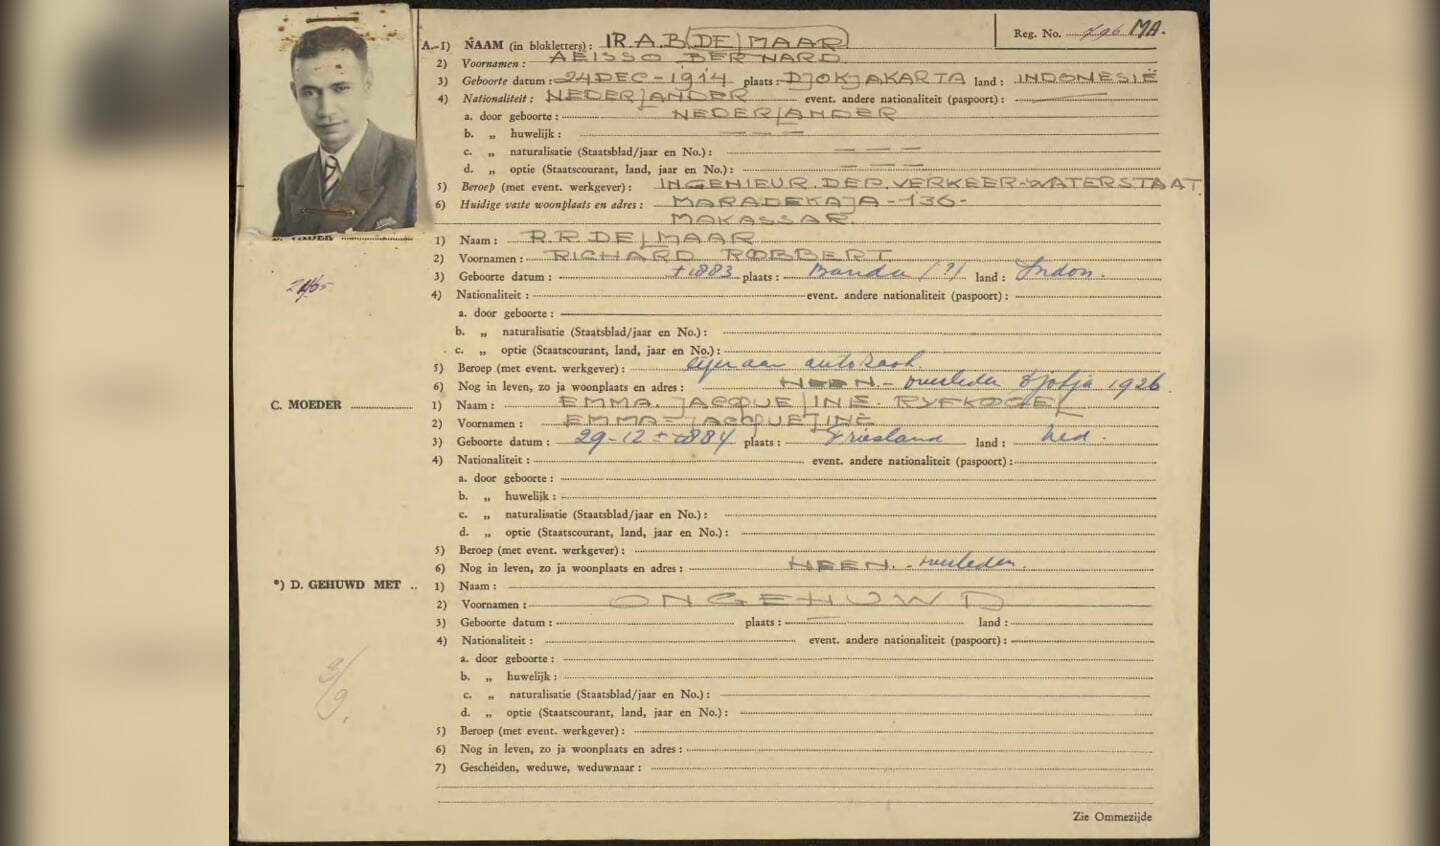 Reg. No. 496 MA.
A.-1) NAAM (in blokletters): IR. A. B. (DE MAAR)
2) Voornamen: AEISSO BERNARD
3) Geboorte datum: 24 DEC - 1914 plaats: DJOKJAKARTA land: INDONESIË
4) Nationaliteit: NEDERLANDER event. andere nationaliteit (paspoort):
a. door geboorte: NEDERLANDER
b. „ huwelijk: — — —
c. „ naturalisatie (Staatsblad/jaar en No.): — — —
d. „ optie (Staatscourant, land, jaar en No.): — — —
5) Beroep (met event. werkgever): INGENIEUR. DEP. VERKEER-WATERSTAAT
6) Huidige vaste woonplaats en adres: MARADEKAJA - 136 -
MAKASSAR
1) Naam: R.R. DE MAAR
2) Voornamen: RICHARD ROBBERT
3) Geboorte datum: ± 1883 plaats: Banda (?) land: Indon.
4) Nationaliteit: event. andere nationaliteit (paspoort):
a. door geboorte:
b. „ naturalisatie (Staatsblad/jaar en No.):
c. „ optie (Staatscourant, land, jaar en No.):
5) Beroep (met event. werkgever): eigenaar autozaak.
6) Nog in leven, zo ja woonplaats en adres: NEEN. - overleden Djokja 1926
C. MOEDER 1) Naam: EMMA. JACQUELINE. RYFKOGEL
2) Voornamen: EMMA - JACQUELINE
3) Geboorte datum: 29-12 ± 1884 plaats: Friesland land: Ned.
4) Nationaliteit: event. andere nationaliteit (paspoort):
a. door geboorte:
b. „ huwelijk:
c. „ naturalisatie (Staatsblad/jaar en No.):
d. „ optie (Staatscourant, land, jaar en No.):
5) Beroep (met event. werkgever):
6) Nog in leven, zo ja woonplaats en adres: NEEN. - overleden.
*) D. GEHUWD MET .. 1) Naam:
2) Voornamen: ONGEHUWD
3) Geboorte datum: plaats: land:
4) Nationaliteit: event. andere nationaliteit (paspoort):
a. door geboorte:
b. „ huwelijk:
c. „ naturalisatie (Staatsblad/jaar en No.):
d. „ optie (Staatscourant, land, jaar en No.):
5) Beroep (met event. werkgever):
6) Nog in leven, zo ja woonplaats en adres:
7) Gescheiden, weduwe, weduwnaar:
3/9.
Zie Ommezijde